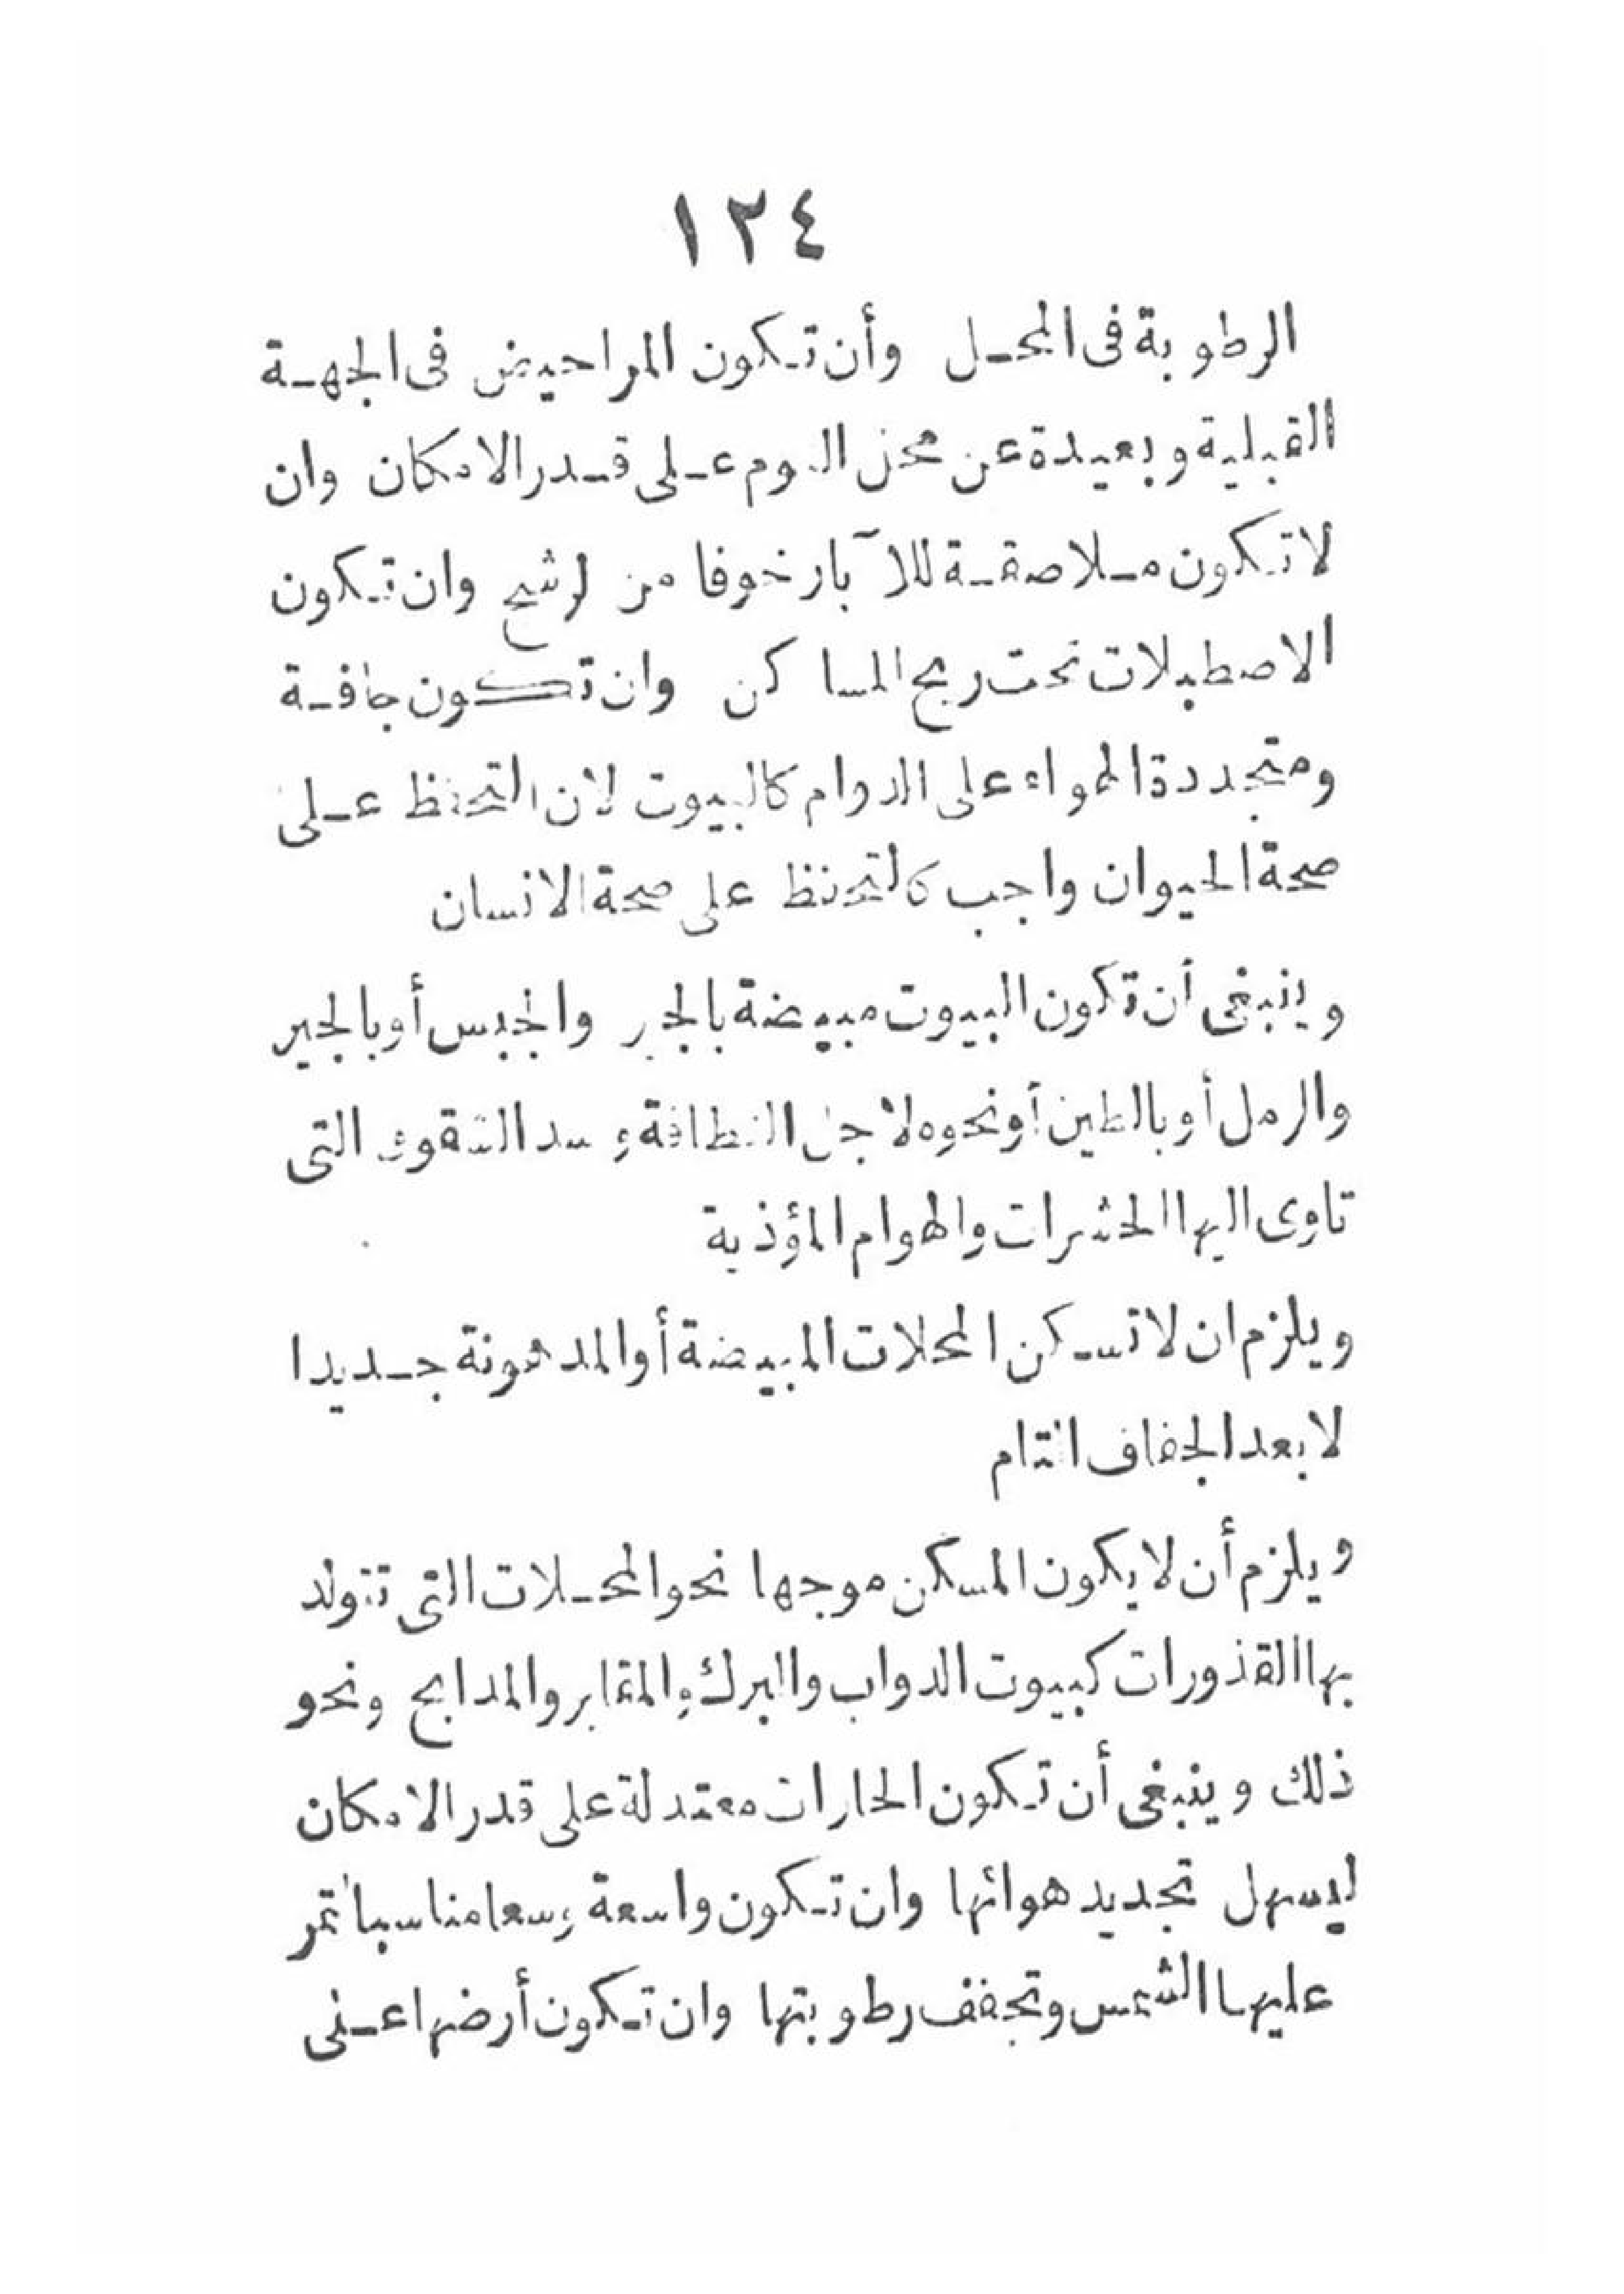 ١٢٤
الرطوبة فى المحل وأن تكون المراحيض فى الجهة
القبلية وبعيدة عن مخزن النوم على قدر الامكان وان
لا تكون ملاصقة للآبار خوفا من الرشح وان تكون
الاصطبلات تحت ريح المساكن وان تكون جافة
ومتجددة الهواء على الدوام كالبيوت لان التحفظ على
صحة الحيوان واجب كالتحفظ على صحة الانسان
وينبغى أن تكون البيوت مبيضة بالجير والجبس أو بالجير
والرمل أو بالطين أو نحوه لاجل النظافة وسد الشقوق التى
تاوى اليها الحشرات والهوام المؤذية
ويلزم ان لا تسكن المحلات المبيضة أو المدهونة جديدا
لا بعد الجفاف التام
ويلزم أن لا يكون المسكن موجها نحو المحلات التى تتولد
بها القذورات كبيوت الدواب والبرك والمقابر والمدابح ونحو
ذلك وينبغى أن تكون الحارات معتدلة على قدر الامكان
ليسهل تجديد هوائها وان تكون واسعة وسعا مناسبا تمر
عليها الشمس وتجفف رطوبتها وان تكون أرضها